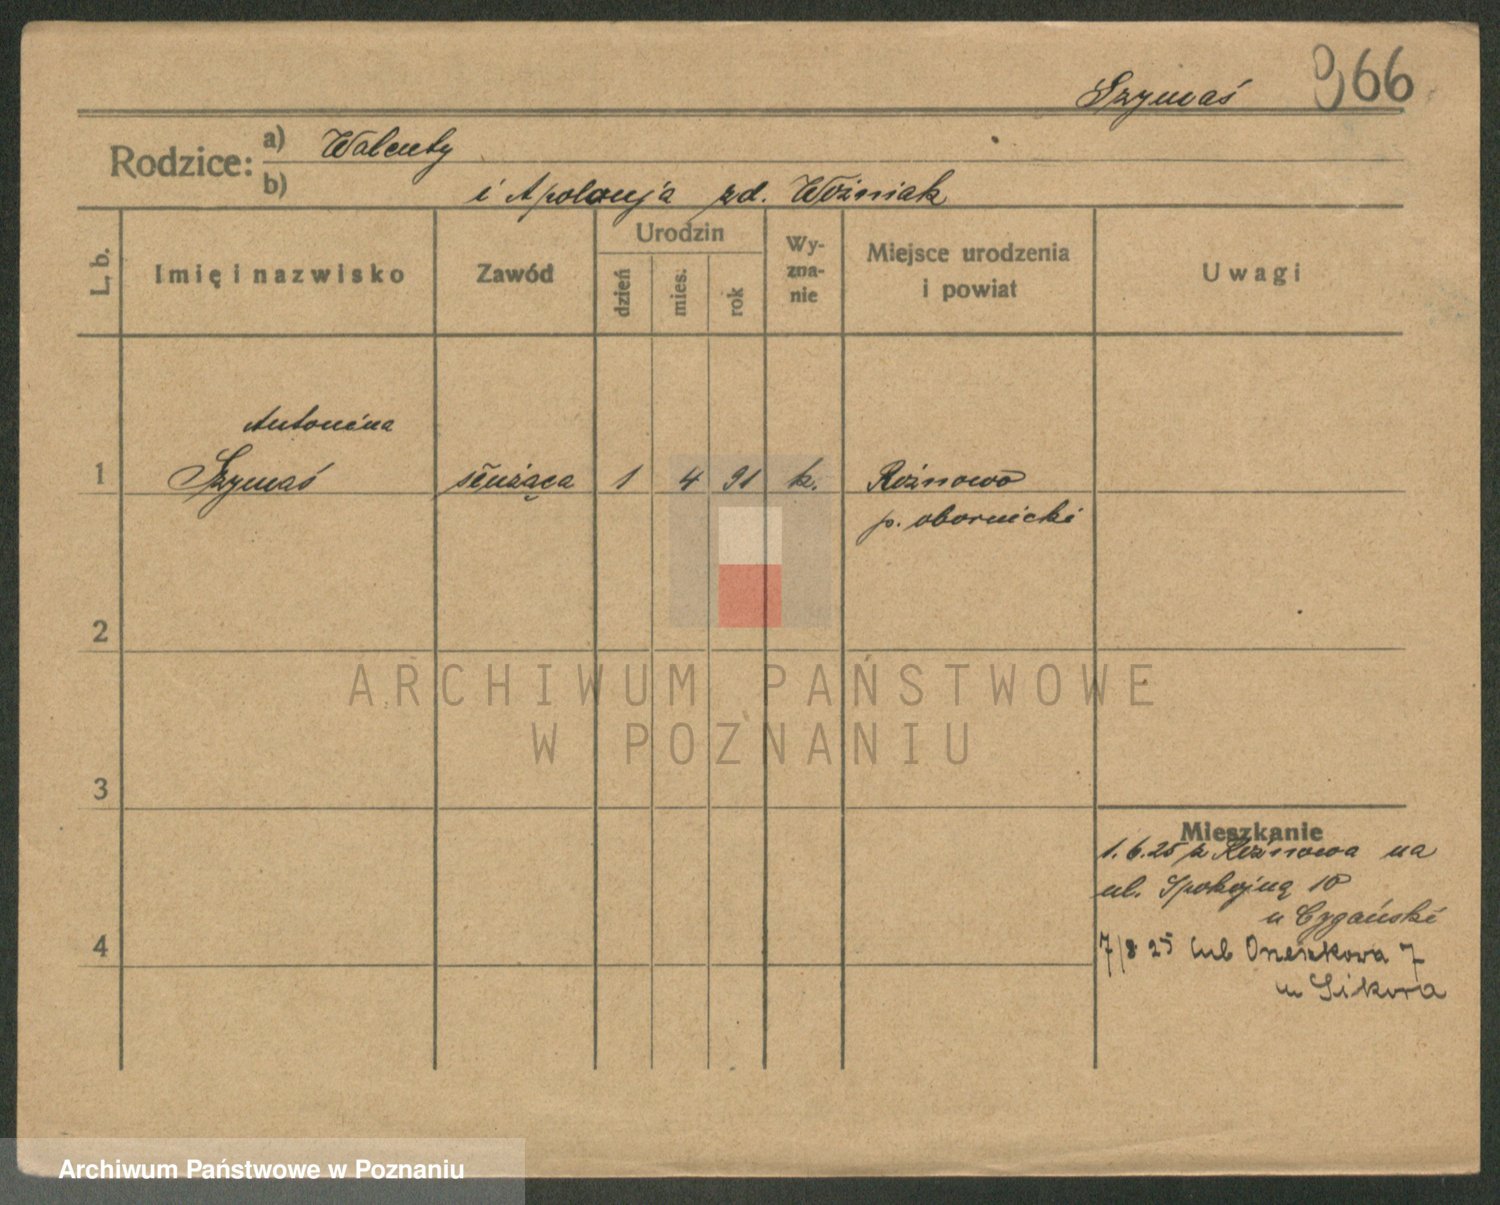 Szymaś 966
Rodzice: a) Walenty
b) i Apolonja zd. Woźniak
L. b.
Imię i nazwisko
Zawód
Urodzin
dzień
mies.
rok
Wy-
zna-
nie
Miejsce urodzenia
i powiat
Uwagi
Antonina
1 Szymaś służąca 1 4 91 k. Rożnowo
p. obornicki
2
ARCHIWUM PAŃSTWOWE
W POZNANIU
3
Mieszkanie
1.6.25 z Rożnowa na
ul. Spokojną 10
u Cygański
4
7/8 25 Orzeszkowa 7
u Sikora
Archiwum Państwowe w Poznaniu